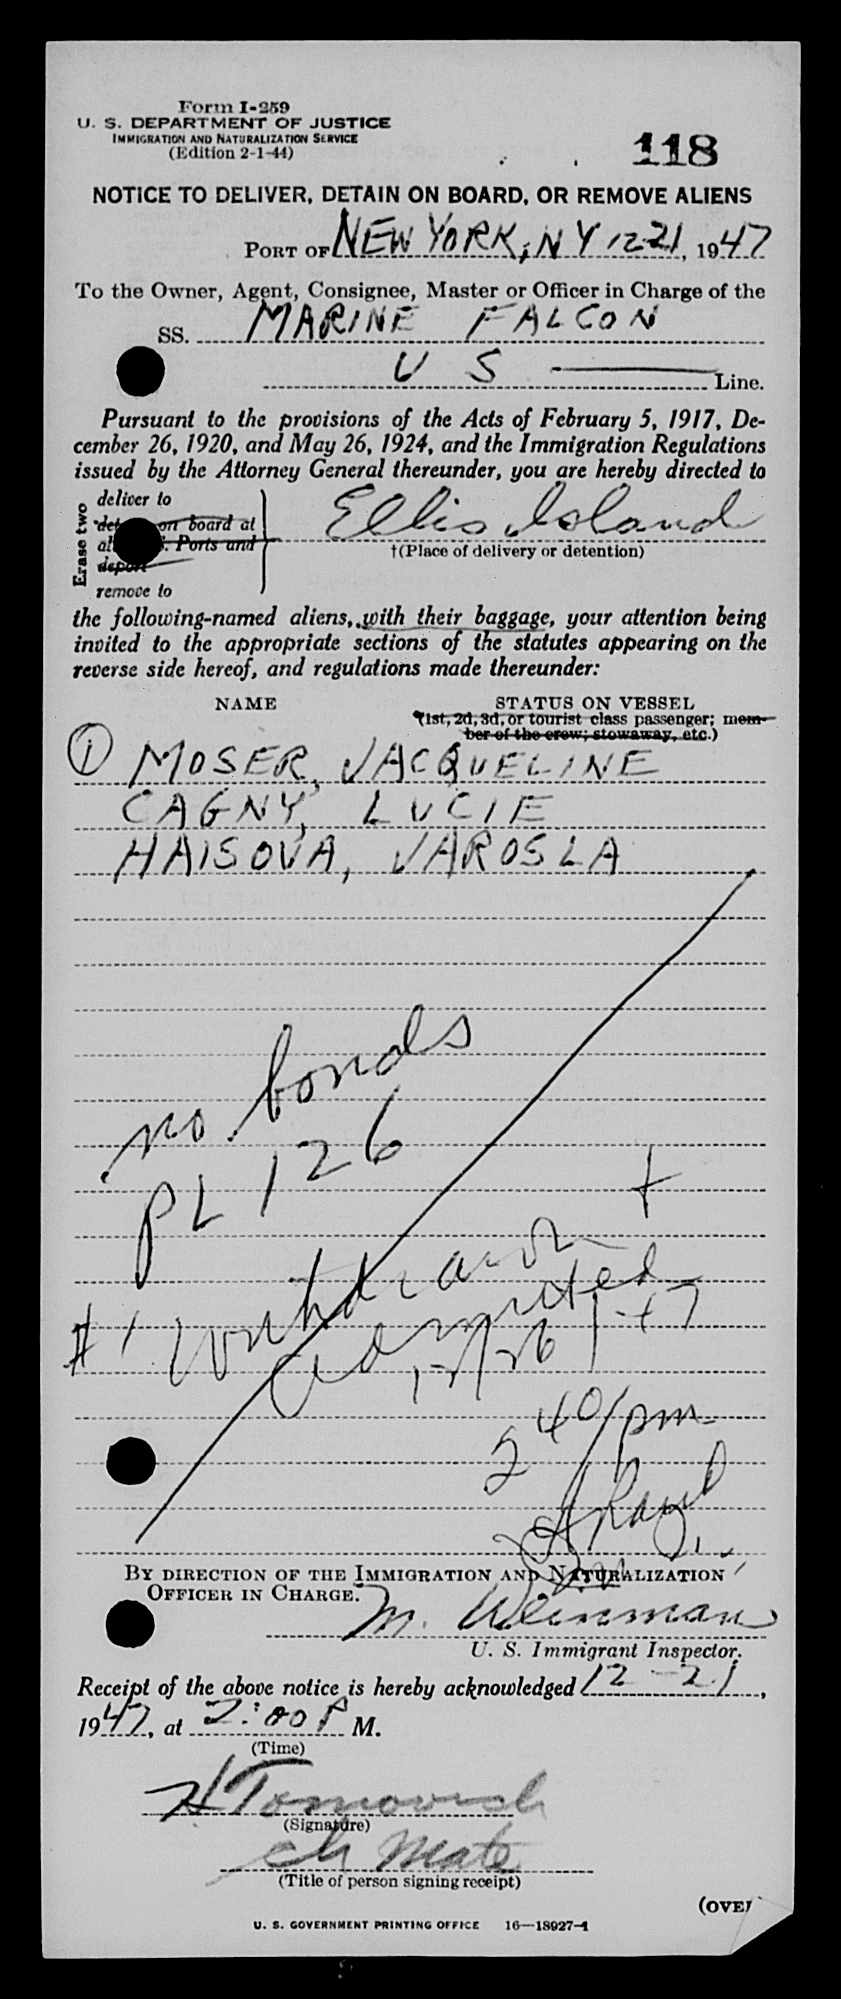 Form I-259
U. S. DEPARTMENT OF JUSTICE
IMMIGRATION AND NATURALIZATION SERVICE
(Edition 2-1-44)
118
NOTICE TO DELIVER, DETAIN ON BOARD, OR REMOVE ALIENS
PORT OF NEW YORK, N Y 12-21, 1947
To the Owner, Agent, Consignee, Master or Officer in Charge of the
SS. MARINE FALCON
U S Line.
Pursuant to the provisions of the Acts of February 5, 1917, De-
cember 26, 1920, and May 26, 1924, and the Immigration Regulations
issued by the Attorney General thereunder, you are hereby directed to
Erase two
deliver to
on board at
Ports and
deport
remove to
Ellis Island
†(Place of delivery or detention)
the following-named aliens, with their baggage, your attention being
invited to the appropriate sections of the statutes appearing on the
reverse side hereof, and regulations made thereunder:
NAME STATUS ON VESSEL
(1st, 2d, 3d, or tourist class passenger; mem-
ber of the crew; stowaway, etc.)
1 MOSER, JACQUELINE
CAGNY, LUCIE
HAISOVA, JAROSLA
no bonds
PL 126
#1 Withdrawn +
admitted
12/26/47
2 40/pm
BY DIRECTION OF THE IMMIGRATION AND NATURALIZATION
OFFICER IN CHARGE.
M. Weinman
U. S. Immigrant Inspector.
Receipt of the above notice is hereby acknowledged 12-21,
1947, at 2:00 P M.
(Time)
H Tomovich
(Signature)
ch Mate
(Title of person signing receipt)
(OVER
U. S. GOVERNMENT PRINTING OFFICE 16—18927-1